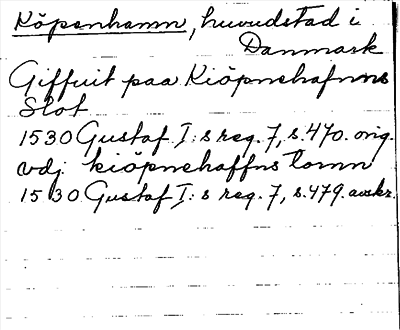 Köpenhamn, huvudstad i
Danmark
Giffuit paa Kiöpnehafnns
Slot
1530 Gustaf I:s reg. 7, s. 470. orig.
vdj kiöpnehaffns tomn
1530 Gustaf I:s reg. 7, s. 479. avskr.